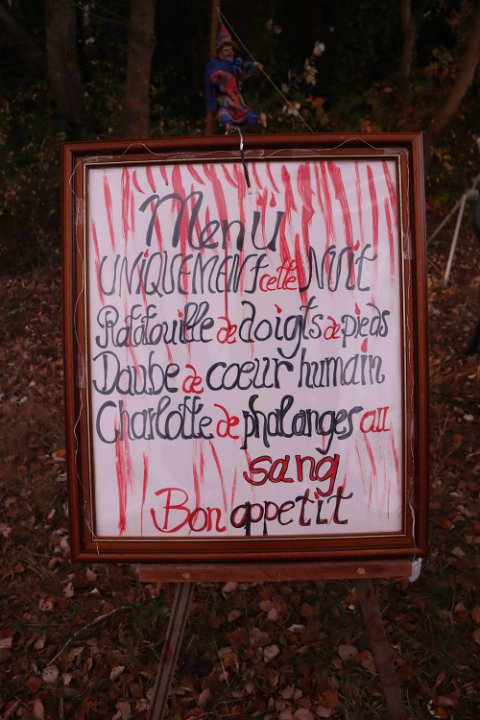 Menu
UNiQUEMENT cette NUit
Ratatouille de doigts de pieds
Daube de cœur humain
Charlotte de phalanges au
sang
Bon appetit